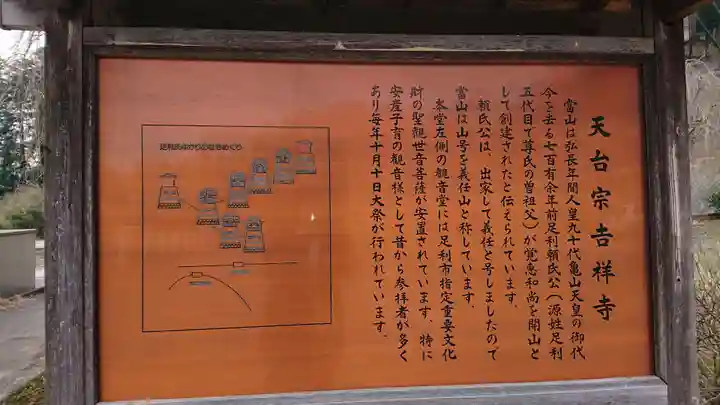 天台宗吉祥寺
當山は弘長年間人皇九十代亀山天皇の御代
今を去る七百有余年前足利頼氏公(源姓足利
五代目で尊氏の曽祖父)が覚恵和尚を開山と
して創建されたと伝えられています。
頼氏公は、出家して義任と号しましたので
當山は山号を義任山と称しています。
本堂左側の観音堂には足利市指定重要文化
財の聖観世音菩薩が安置されています。特に
安産子育の観音様として昔から参拝者が多く
あり毎年十月十日大祭が行われています。
足利氏ゆかりの社寺めぐり